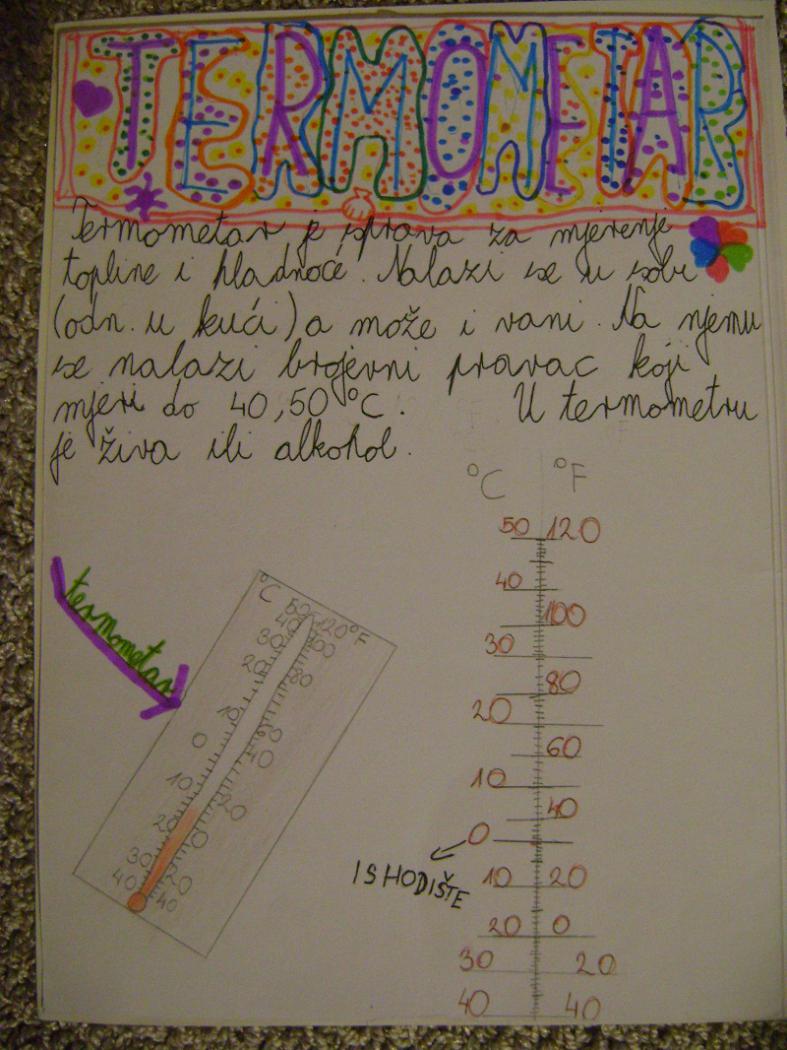 TERMOMETAR
Termometar je sprava za mjerenje
topline i hladnoće. Nalazi se u sobi
(odn. u kući) a može i vani. Na njemu
se nalazi brojevni pravac koji
mjeri do 40,50 °C. U termometru
je živa ili alkohol.
°C °F
50 120
40
100
30
80
20
60
10
40
0
ISHODIŠTE
10 20
20 0
30 20
40 40
termometar
°C
50 120 °F
40 100
30
20 80
10
0 60
40
10
20
20
0
30
20
40 40